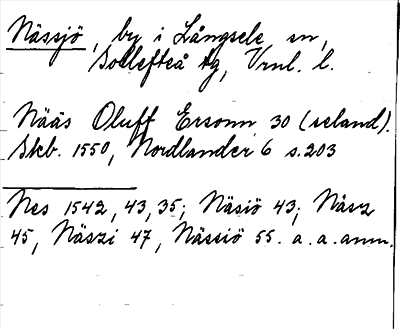 Nässjö, by i Långsele sn,
Sollefteå tg, Vrnl. l.
Nääs Oluff Ersonn 30 (seland).
Skb. 1550, Nordlander 6 s.203
Nes 1542, 43, 35; Näsiö 43; Näsz
45, Näszi 47, Nässiö 55. a. a. ann.